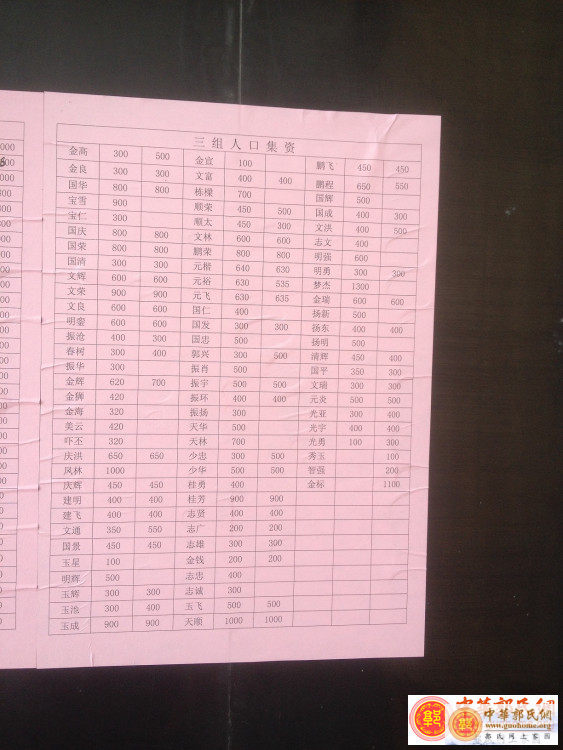 三组人口集资
金高 300 500 金宣 100 鹏飞 450 450
金良 300 300 文富 400 400 鹏程 650 550
国华 800 800 栋樑 700 国辉 500
宝雪 900 顺荣 450 500 国成 400 300
宝仁 300 顺太 450 300 文洪 400 500
国庆 800 800 文林 600 600 志文 400
国荣 800 800 鹏荣 800 800 明强 600
国清 300 300 元楷 640 630 明勇 300 300
文辉 600 600 元裕 630 535 梦杰 1300
文荣 900 900 元飞 630 635 金瑞 600 600
文良 600 600 国仁 400 扬新 500
明銮 600 600 国发 300 300 扬东 400 400
振沧 400 300 国忠 500 扬明 500
春树 300 400 郭兴 300 500 清辉 450 400
振华 300 振肖 500 国平 350 300
金辉 620 700 振宇 500 500 文瑞 300 300
金狮 420 振环 400 400 元炎 500 500
金海 320 振扬 300 光亚 300 400
美云 420 天华 500 光宇 400 400
吓丕 320 天林 700 光勇 100 300
庆洪 650 650 少忠 300 500 秀玉 100
凤林 1000 少华 500 500 智强 200
庆辉 450 450 桂勇 400 金标 1100
建明 400 400 桂芳 900 900
建飞 400 400 志贤 400 400
文通 350 550 志广 200 200
国景 450 450 志雄 300 300
玉星 100 金钱 200 200
明辉 500 志忠 400
玉辉 300 300 志诚 300
玉池 300 400 玉飞 500 500
玉成 900 900 天顺 1000 1000
中華郭氏網
www.guohome.org
郭氏网上家园